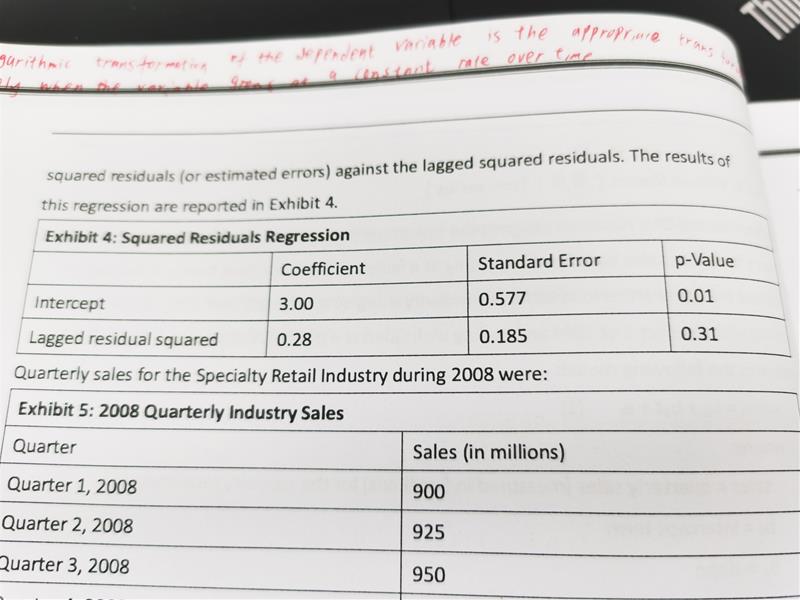 transformation of the dependent variable is the appropriate
when the variable grows at a constant rate over time
squared residuals (or estimated errors) against the lagged squared residuals. The results of
this regression are reported in Exhibit 4.
Exhibit 4: Squared Residuals Regression
Coefficient Standard Error p-Value
Intercept 3.00 0.577 0.01
Lagged residual squared 0.28 0.185 0.31
Quarterly sales for the Specialty Retail Industry during 2008 were:
Exhibit 5: 2008 Quarterly Industry Sales
Quarter Sales (in millions)
Quarter 1, 2008 900
Quarter 2, 2008 925
Quarter 3, 2008 950